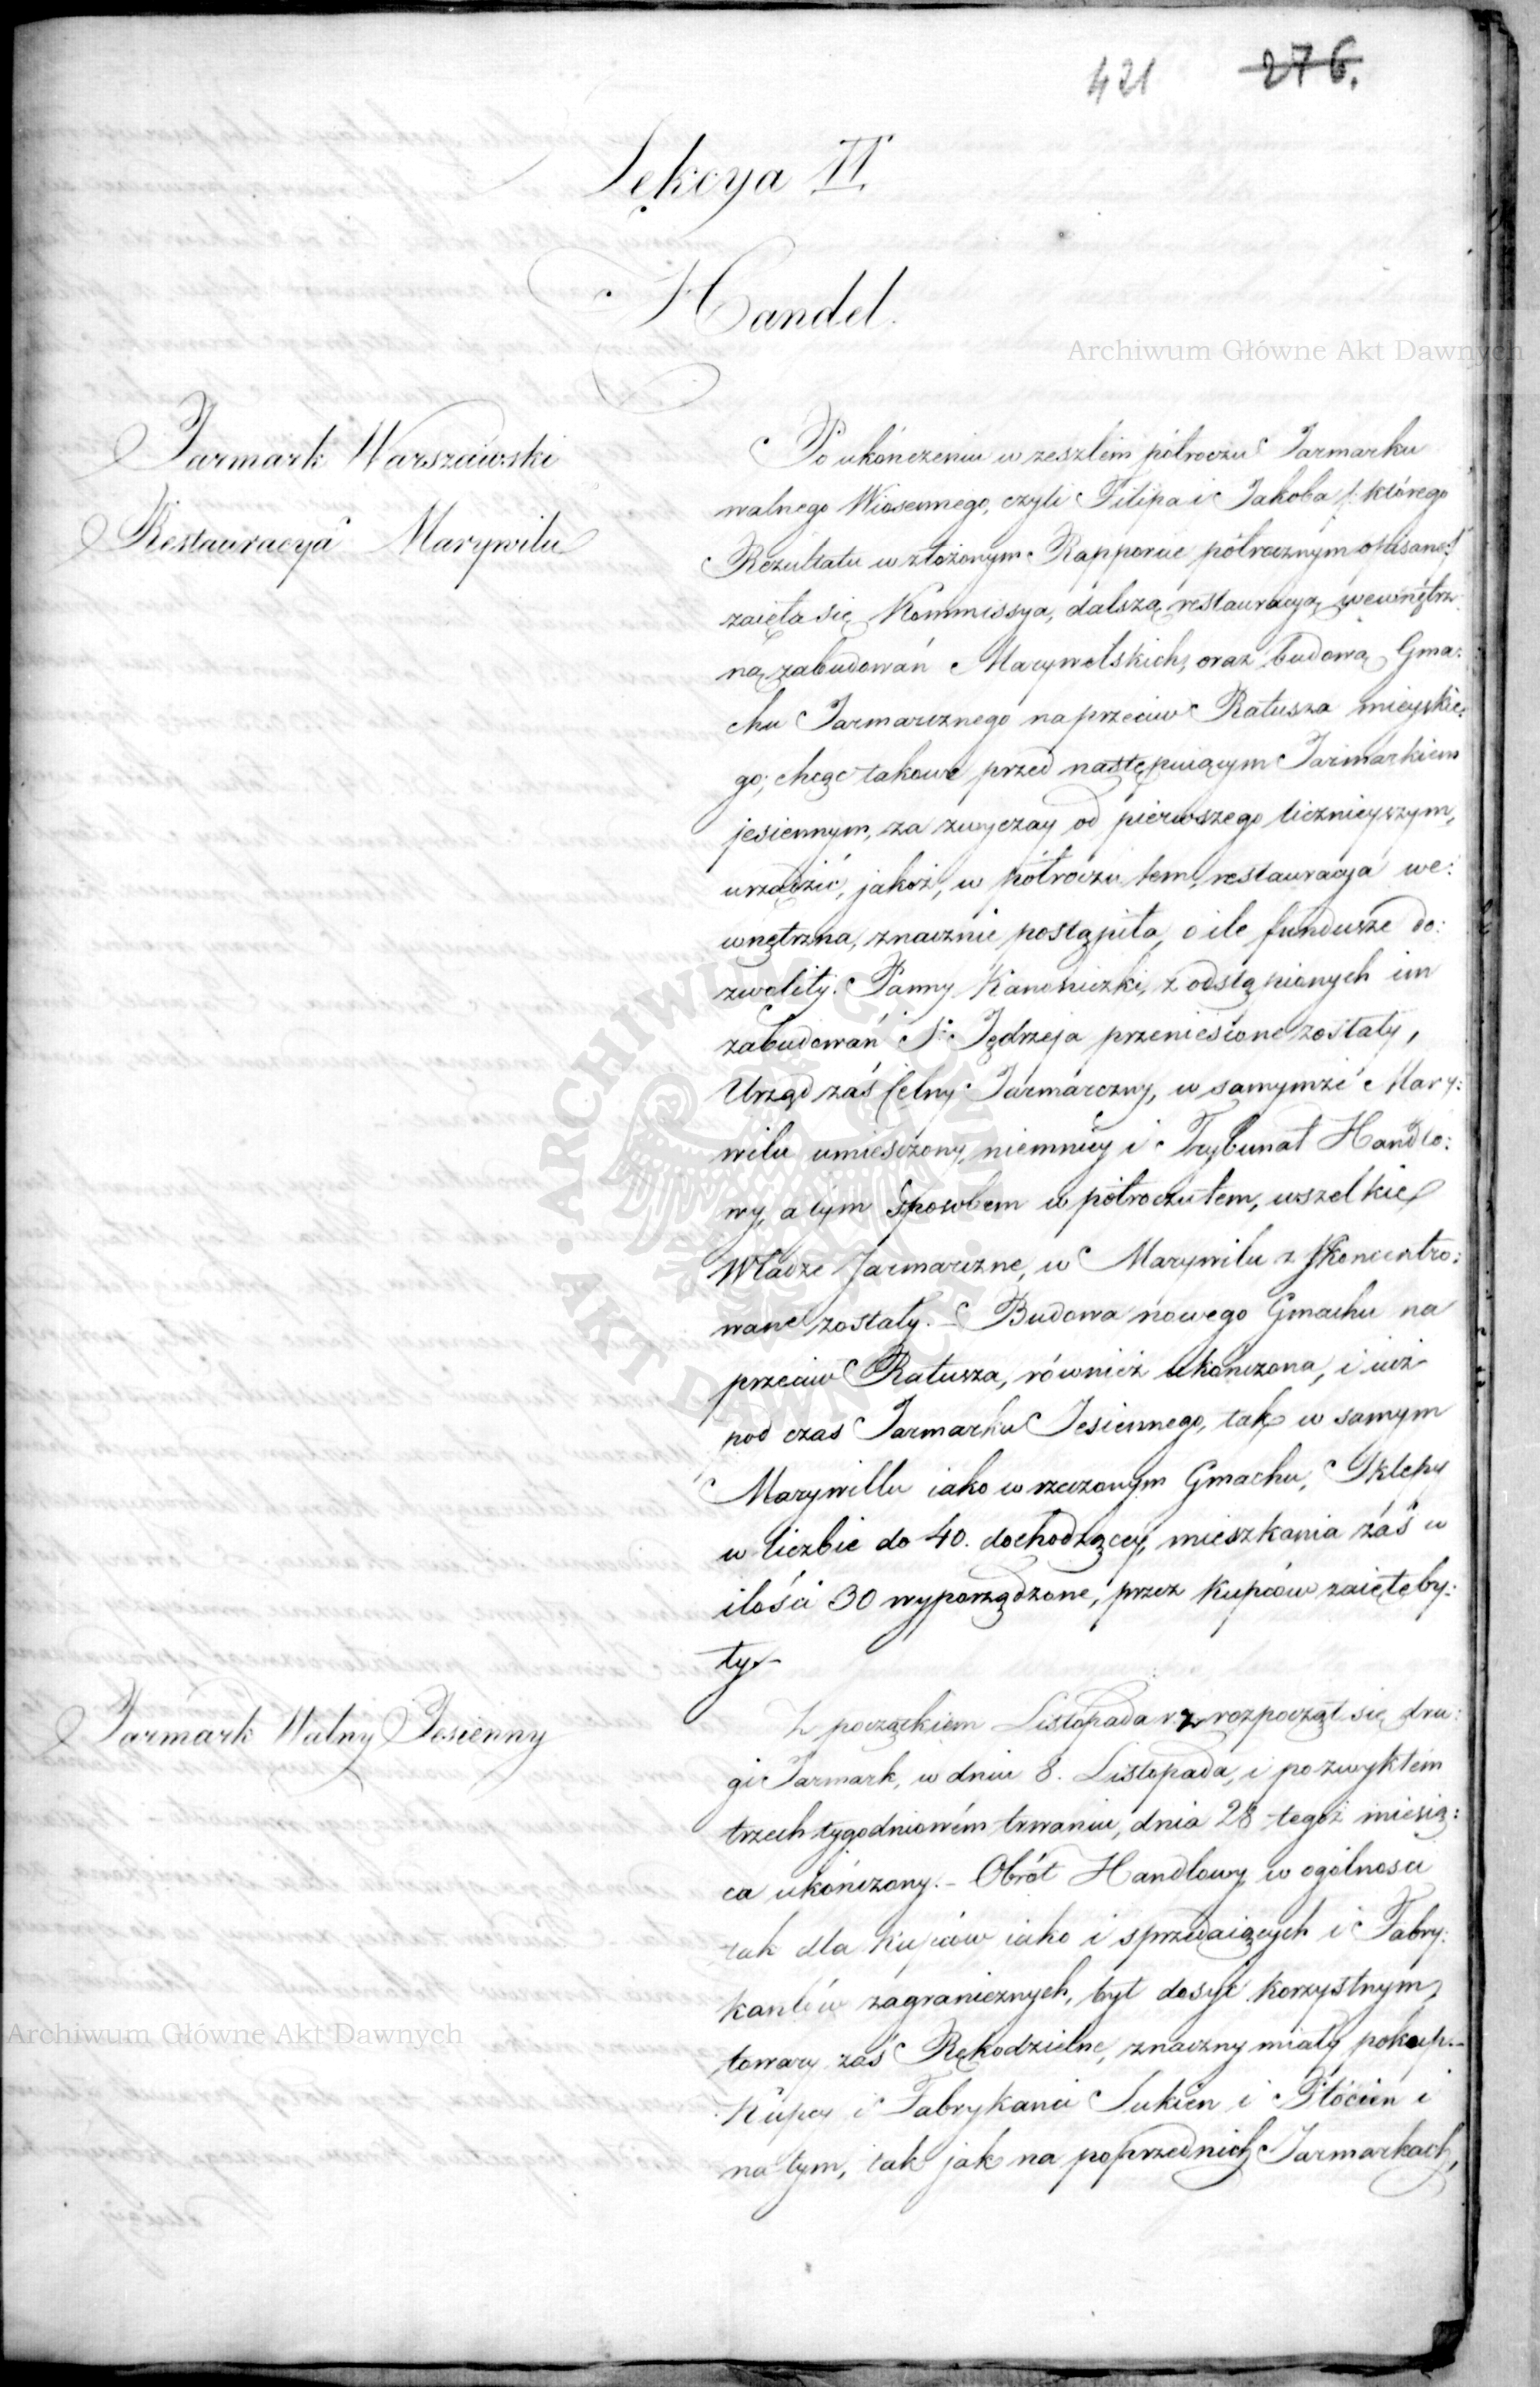 421 276.
Sękcya II.
Handel.
Archiwum Główne Akt Dawnych
Jarmark Warszawski
Restauracya Marywilu
Po ukończeniu w zeszłém półroczu Jarmarku
walnego Wiosennego, czyli Filipa i Jakóba /: którego
Rezultata w złożonym Rapporcie półrocznym opisane :/
zaięła się Kommissya, dalszą restauracyą wewnętrz-
ną zabudowań Marywolskich, oraz budową Gma:
chu Jarmarcznego naprzeciw Ratusza mieyskie:
go; chcąc takowe przed następuiącym Jarmarkiem
jesiennym, za zwyczay od pierwszego licznieyszym,
urządzić, jakoż, w półroczu tem, restauracya we:
wnętrzna, znacznie postąpiła, o ile fundusze do:
zwoliły. Panny Kanoniczki, z odstąpionych im
zabudowań S. Jędrzeja przeniesione zostały,
Urząd zaś Celny Jarmarczny, w samymże Mary:
wilu umieszczony, niemniey i Trybunał Handlo:
wy, a tym sposobem w półroczu tem, wszelkie
Władze Jarmarczne, w Marywilu skoncentro:
wane zostały. – Budowa nowego Gmachu na
przeciw Ratusza, również ukończona, i iuż
pod czas Jarmarku Jesiennego, tak w samym
Marywillu iako w rzeczonym Gmachu, Sklepy
w liczbie do 40. dochodzącey, mieszkania zaś w
ilości 30 wyporządzone, przez Kupców zaięte by:
ły. –
Jarmark Walny Jesienny
Z początkiem Listopada r. z. rozpoczął się dru:
gi Jarmark, w dniu 8. Listopada, i po zwykłém
trzech tygodniowém trwaniu, dnia 28 tegoż miesią:
ca ukończony. – Obrót Handlowy w ogólności
tak dla Kupców iako i sprzedaiących i Fabry:
kantów zagranicznych, był dosyć korzystnym,
towary zaś Rękodzielne, znaczny miały pokup. –
Kupcy i Fabrykanci Sukien i Płócien i
na tym, tak jak na poprzednich Jarmarkach,
Archiwum Główne Akt Dawnych
ARCHIWUM GŁÓWNE
AKT DAWNYCH